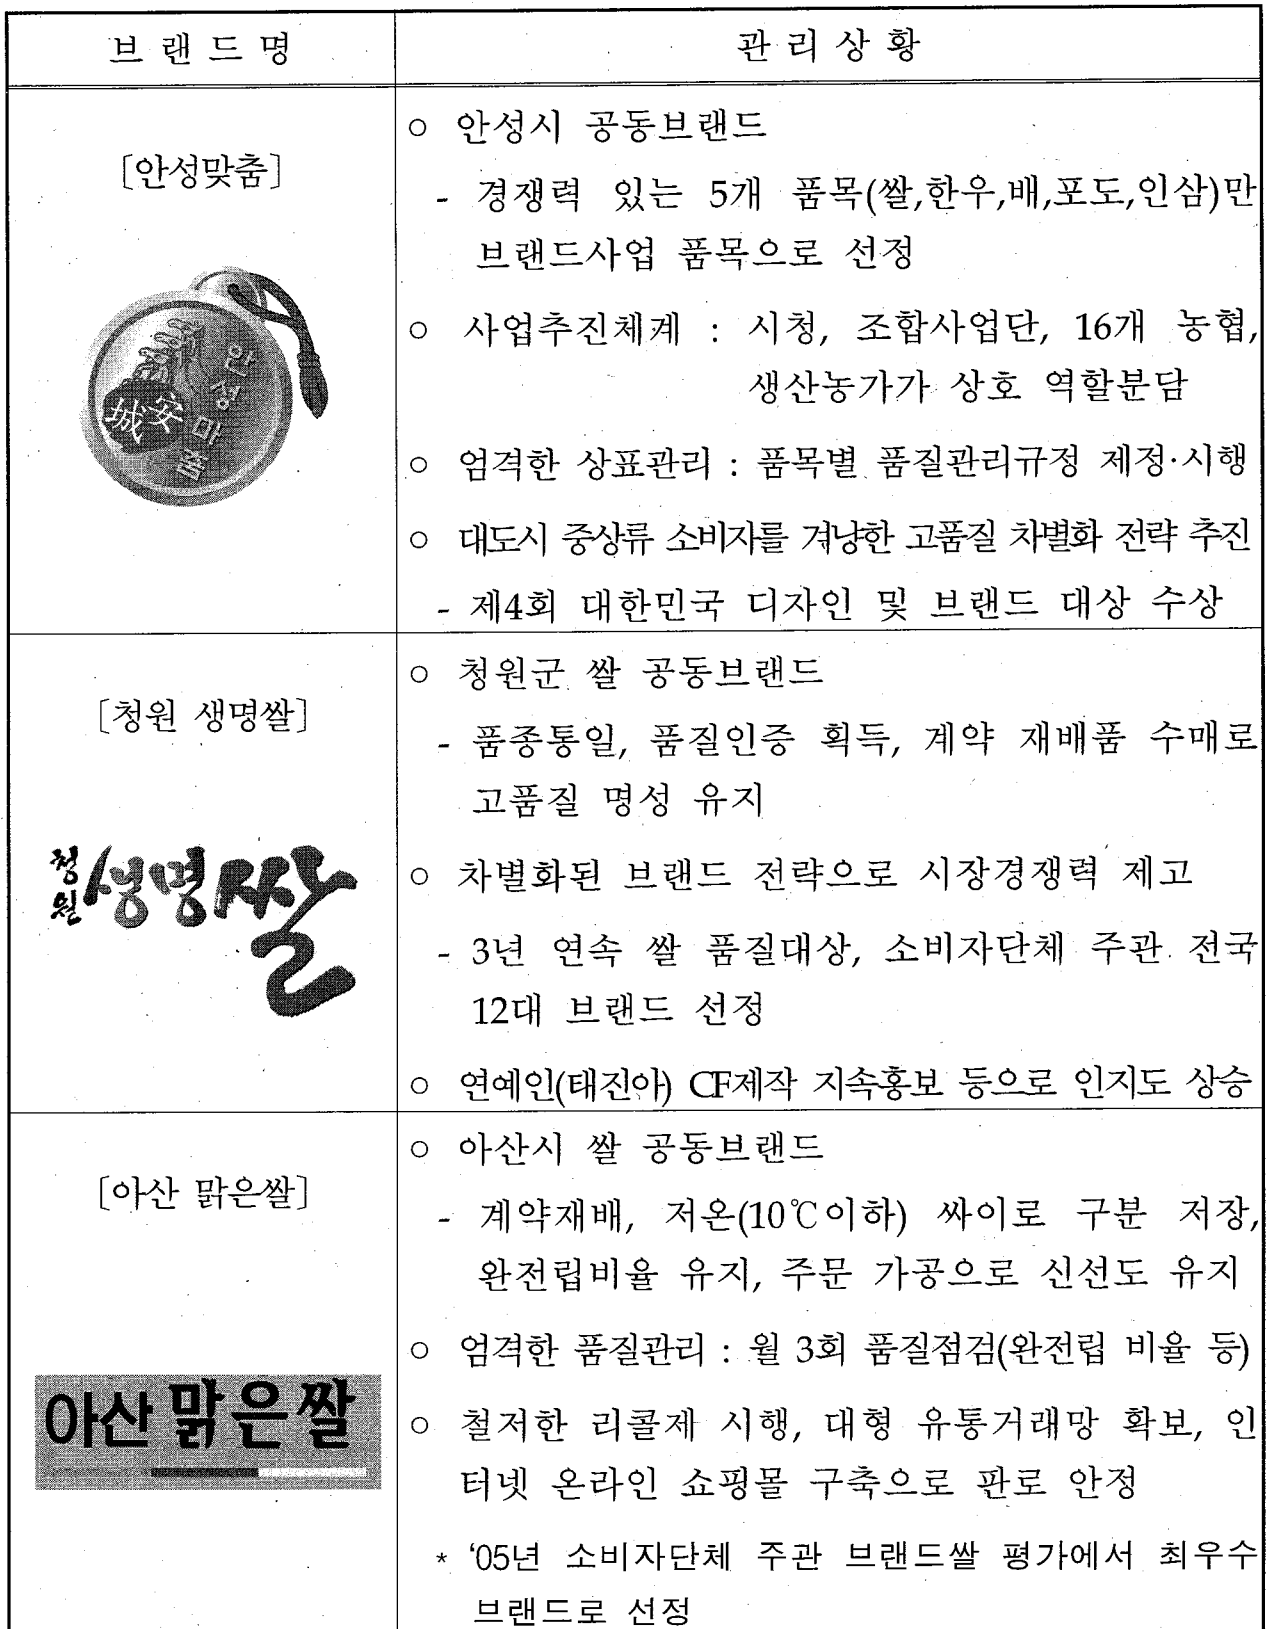 브 랜 드 명
관 리 상 황
[안성맞춤]
안성마춤
安城
○ 안성시 공동브랜드
- 경쟁력 있는 5개 품목(쌀,한우,배,포도,인삼)만
브랜드사업 품목으로 선정
○ 사업추진체계 : 시청, 조합사업단, 16개 농협,
생산농가가 상호 역할분담
○ 엄격한 상표관리 : 품목별 품질관리규정 제정·시행
○ 대도시 중상류 소비자를 겨냥한 고품질 차별화 전략 추진
- 제4회 대한민국 디자인 및 브랜드 대상 수상
[청원 생명쌀]
청원 생명쌀
○ 청원군 쌀 공동브랜드
- 품종통일, 품질인증 획득, 계약 재배품 수매로
고품질 명성 유지
○ 차별화된 브랜드 전략으로 시장경쟁력 제고
- 3년 연속 쌀 품질대상, 소비자단체 주관 전국
12대 브랜드 선정
○ 연예인(태진아) CF제작 지속홍보 등으로 인지도 상승
[아산 맑은쌀]
아산 맑은쌀
○ 아산시 쌀 공동브랜드
- 계약재배, 저온(10℃이하) 싸이로 구분 저장,
완전립비율 유지, 주문 가공으로 신선도 유지
○ 엄격한 품질관리 : 월 3회 품질점검(완전립 비율 등)
○ 철저한 리콜제 시행, 대형 유통거래망 확보, 인
터넷 온라인 쇼핑몰 구축으로 판로 안정
* '05년 소비자단체 주관 브랜드쌀 평가에서 최우수
브랜드로 선정